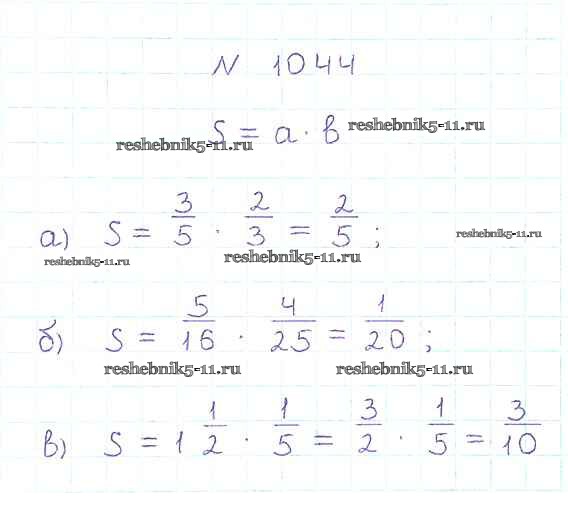 N 1044
S = a · b reshebnik5-11.ru
reshebnik5-11.ru
а) S = 3/5 · 2/3 = 2/5 ; reshebnik5-11.ru
reshebnik5-11.ru reshebnik5-11.ru
б) S = 5/16 · 4/25 = 1/20 ;
reshebnik5-11.ru reshebnik5-11.ru
в) S = 1 1/2 · 1/5 = 3/2 · 1/5 = 3/10